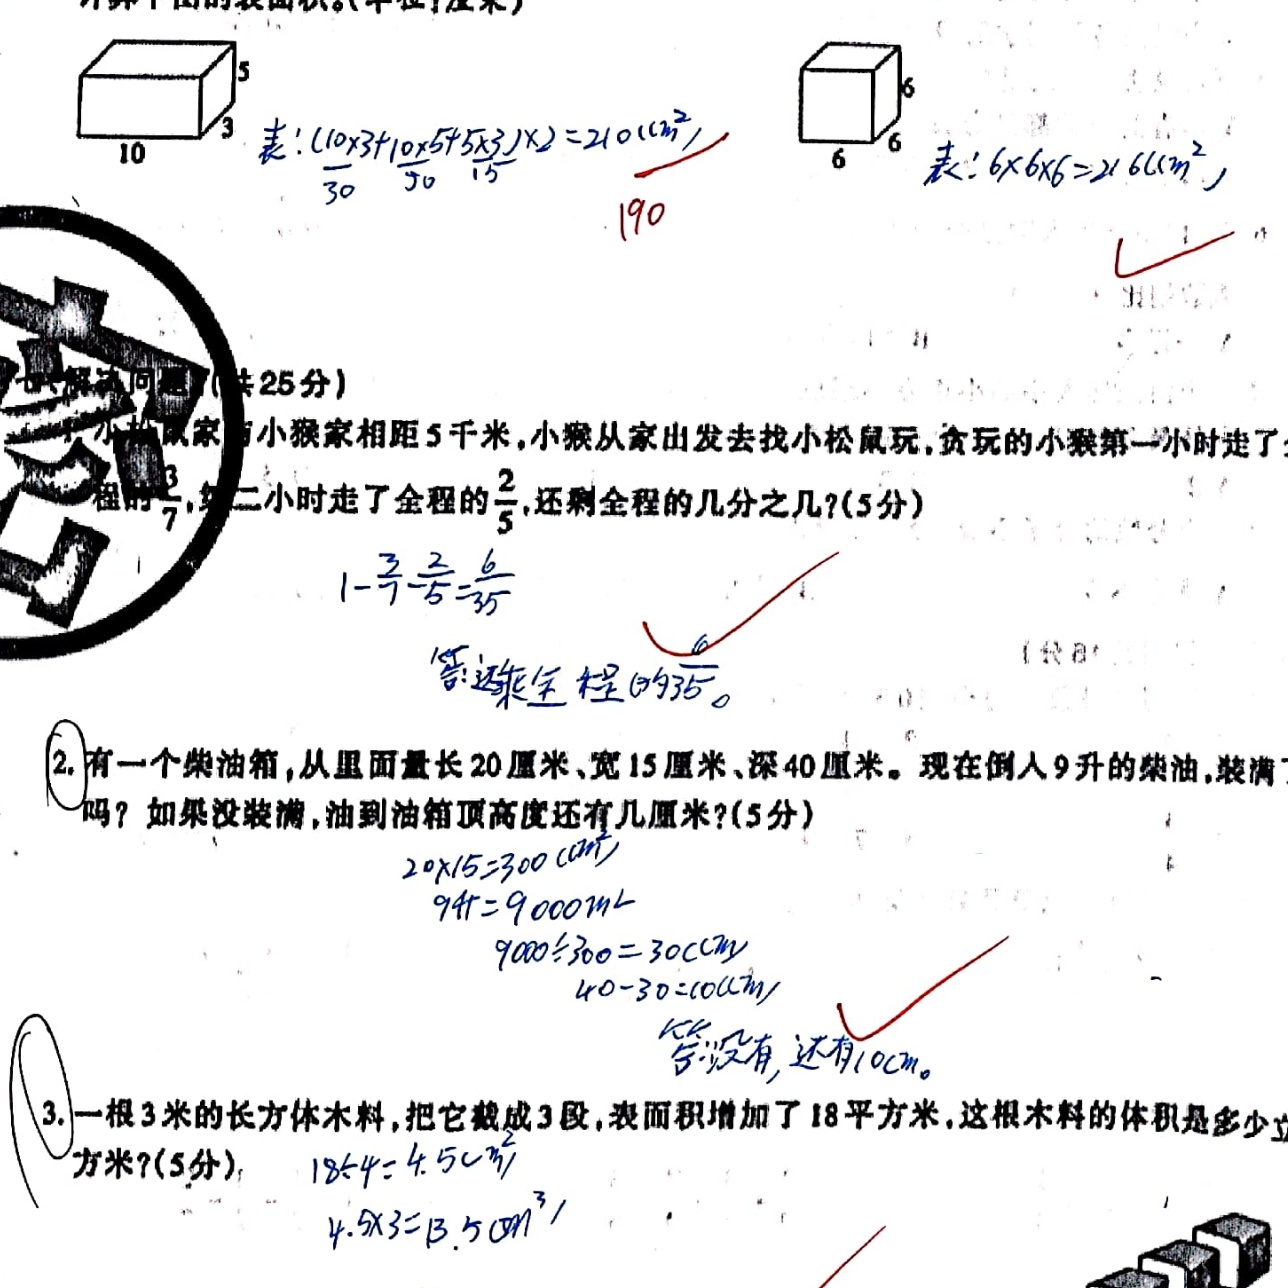 计算下图的表面积。(单位:厘米)
5
3
10
表:(10×3+10×5+5×3)×2=210(cm²)
30 50 15
190
6
6
6
表:6×6×6=216(cm²)
七、解决问题。(共25分)
1. 小松鼠家与小猴家相距5千米,小猴从家出发去找小松鼠玩,贪玩的小猴第一小时走了全
程的3/7,第二小时走了全程的2/5,还剩全程的几分之几?(5分)
1-3/7-2/5=6/35
答:还乘全程的6/35。
2. 有一个柴油箱,从里面量长20厘米、宽15厘米、深40厘米。现在倒入9升的柴油,装满了
吗?如果没装满,油到油箱顶高度还有几厘米?(5分)
20×15=300(cm²)
9升=9000mL
9000÷300=30(cm)
40-30=10(cm)
答:没有,还有10cm。
3. 一根3米的长方体木料,把它截成3段,表面积增加了18平方米,这根木料的体积是多少立
方米?(5分)
18÷4=4.5(m²)
4.5×3=13.5(m³)